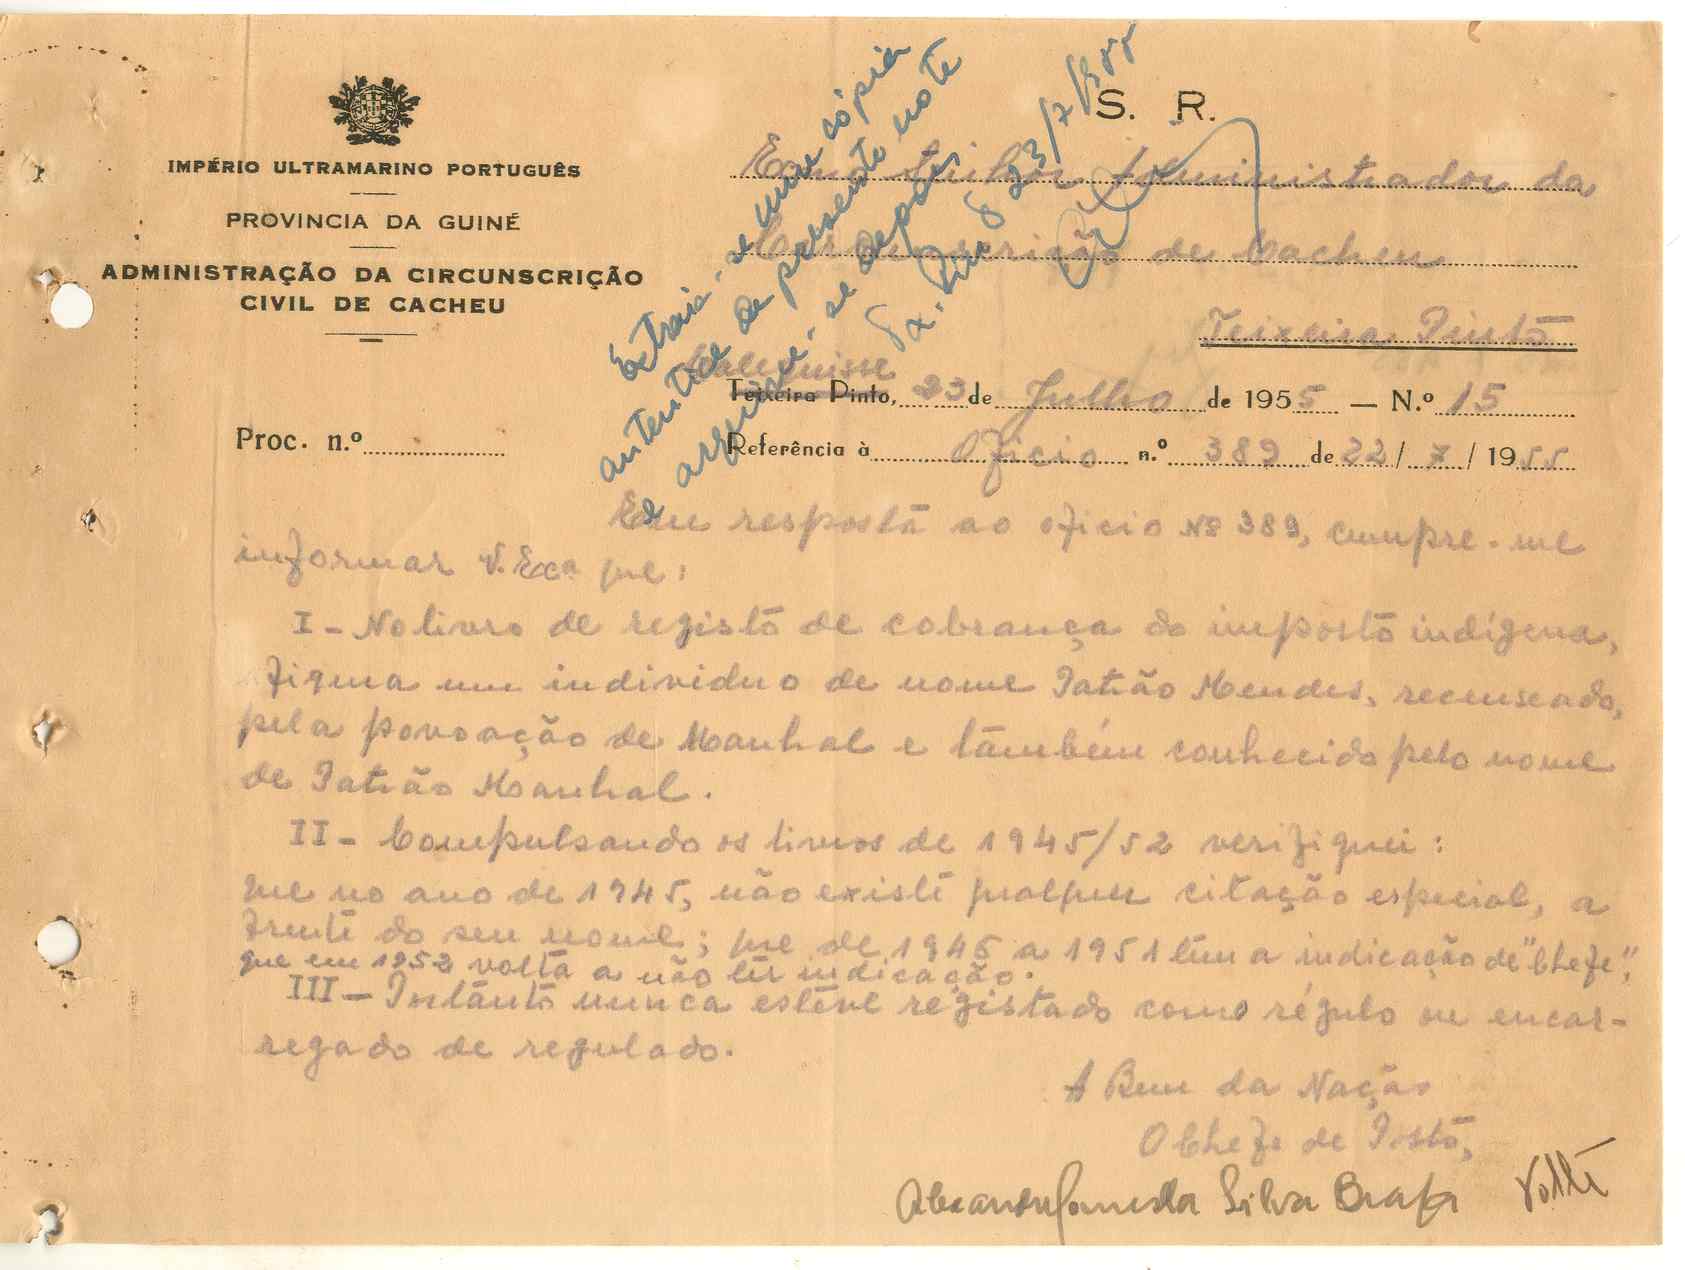 IMPÉRIO ULTRAMARINO PORTUGUÊS
PROVINCIA DA GUINÉ
ADMINISTRAÇÃO DA CIRCUNSCRIÇÃO
CIVIL DE CACHEU
Extraia-se uma cópia
autentica da presente nota
e arquive-se depois
23/7/1955
S. R.
Exmo Senhor Administrador da
Circunscrição de Cacheu
Teixeira Pinto
Calequisse
Teixeira Pinto, 23 de Julho de 1955 — N.º 15
Proc. n.º
Referência à Oficio n.º 389 de 22/7/1955
Em resposta ao oficio Nº 389, cumpre-me
informar V. Exa que:
I - No livro de registo de cobrança do imposto indígena,
figura um individuo de nome Patrão Mendes, recenseado,
pela povoação de Manhal e também conhecido pelo nome
de Patrão Manhal.
II - Compulsando os livros de 1945/52 verifiquei:
que no ano de 1945, não existe qualquer citação especial, a
frente do seu nome; que de 1946 a 1951 tem a indicação de "Chefe";
que em 1952 volta a não ter indicação.
III - Portanto nunca esteve registado como régulo ou encar-
regado de regulado.
A Bem da Nação
O Chefe de Posto,
Alexandre Gomes da Silva Braga
Volte